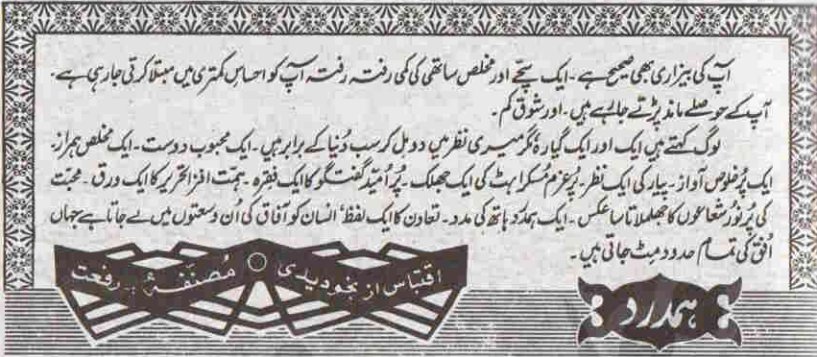 آپ کی بیزاری بھی صحیح ہے ۔ ایک سچے اور مخلص ساتھی کی کمی رفتہ رفتہ آپ کو احساسِ کمتری میں مبتلا کرتی جارہی ہے ۔
آپ کے حوصلے ماند پڑتے جارہے ہیں ۔ اور شوق کم ۔
لوگ کہتے ہیں ایک اور ایک گیارہ مگر میری نظر میں دو مل کر سب دُنیا کے برابر ہیں ۔ ایک محبوب دوست ۔ ایک مخلص ہمراز ۔
ایک پُرخلوص آواز ۔ پیار کی ایک نظر ۔ پُرعزم مُسکراہٹ کی ایک جھلک ۔ پُراُمید گفتگو کا ایک فقرہ ۔ ہمت افزا تحریر کا ایک ورق ۔ محبت
کی پُرنُور شعاعوں کا جھلملاتا سا عکس ۔ ایک ہمدرد ہاتھ کی مدد ۔ تعاون کا ایک لفظ' انسان کو آفاق کی اُن وسعتوں میں لے جاتا ہے جہاں
اُفق کی تمام حدود مِٹ جاتی ہیں ۔
اقتباس از بخودیدی مُصنّفہ : رفعت
ہمدرد